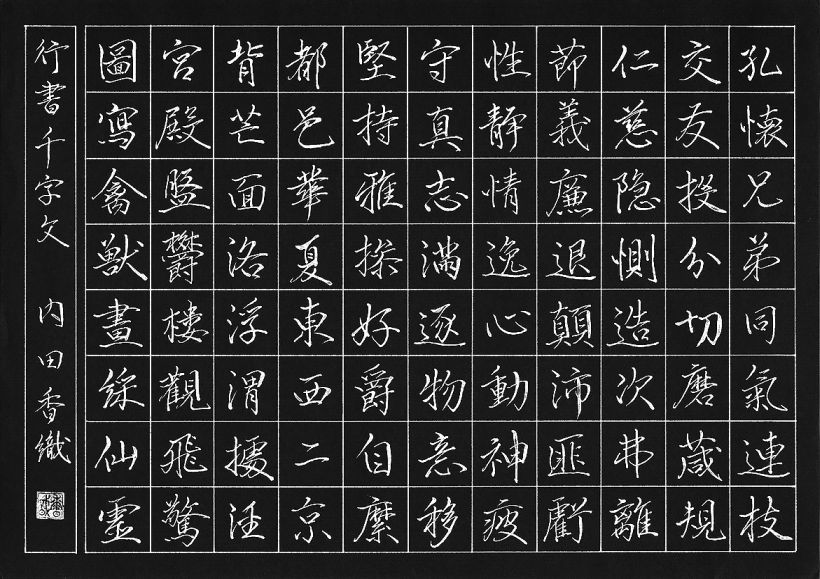 孔懐兄弟同氣連枝
交友投分切磨葴規
仁慈隐惻造次弗離
節義廉退顛沛匪虧
性静情逸心動神疲
守真志満逐物意移
堅持雅操好爵自縻
都邑華夏東西二京
背芒面洛浮渭據泾
宮殿盤欝樓觀飛驚
圖寫禽獣畫綵仙霊
行書千字文 内田香織